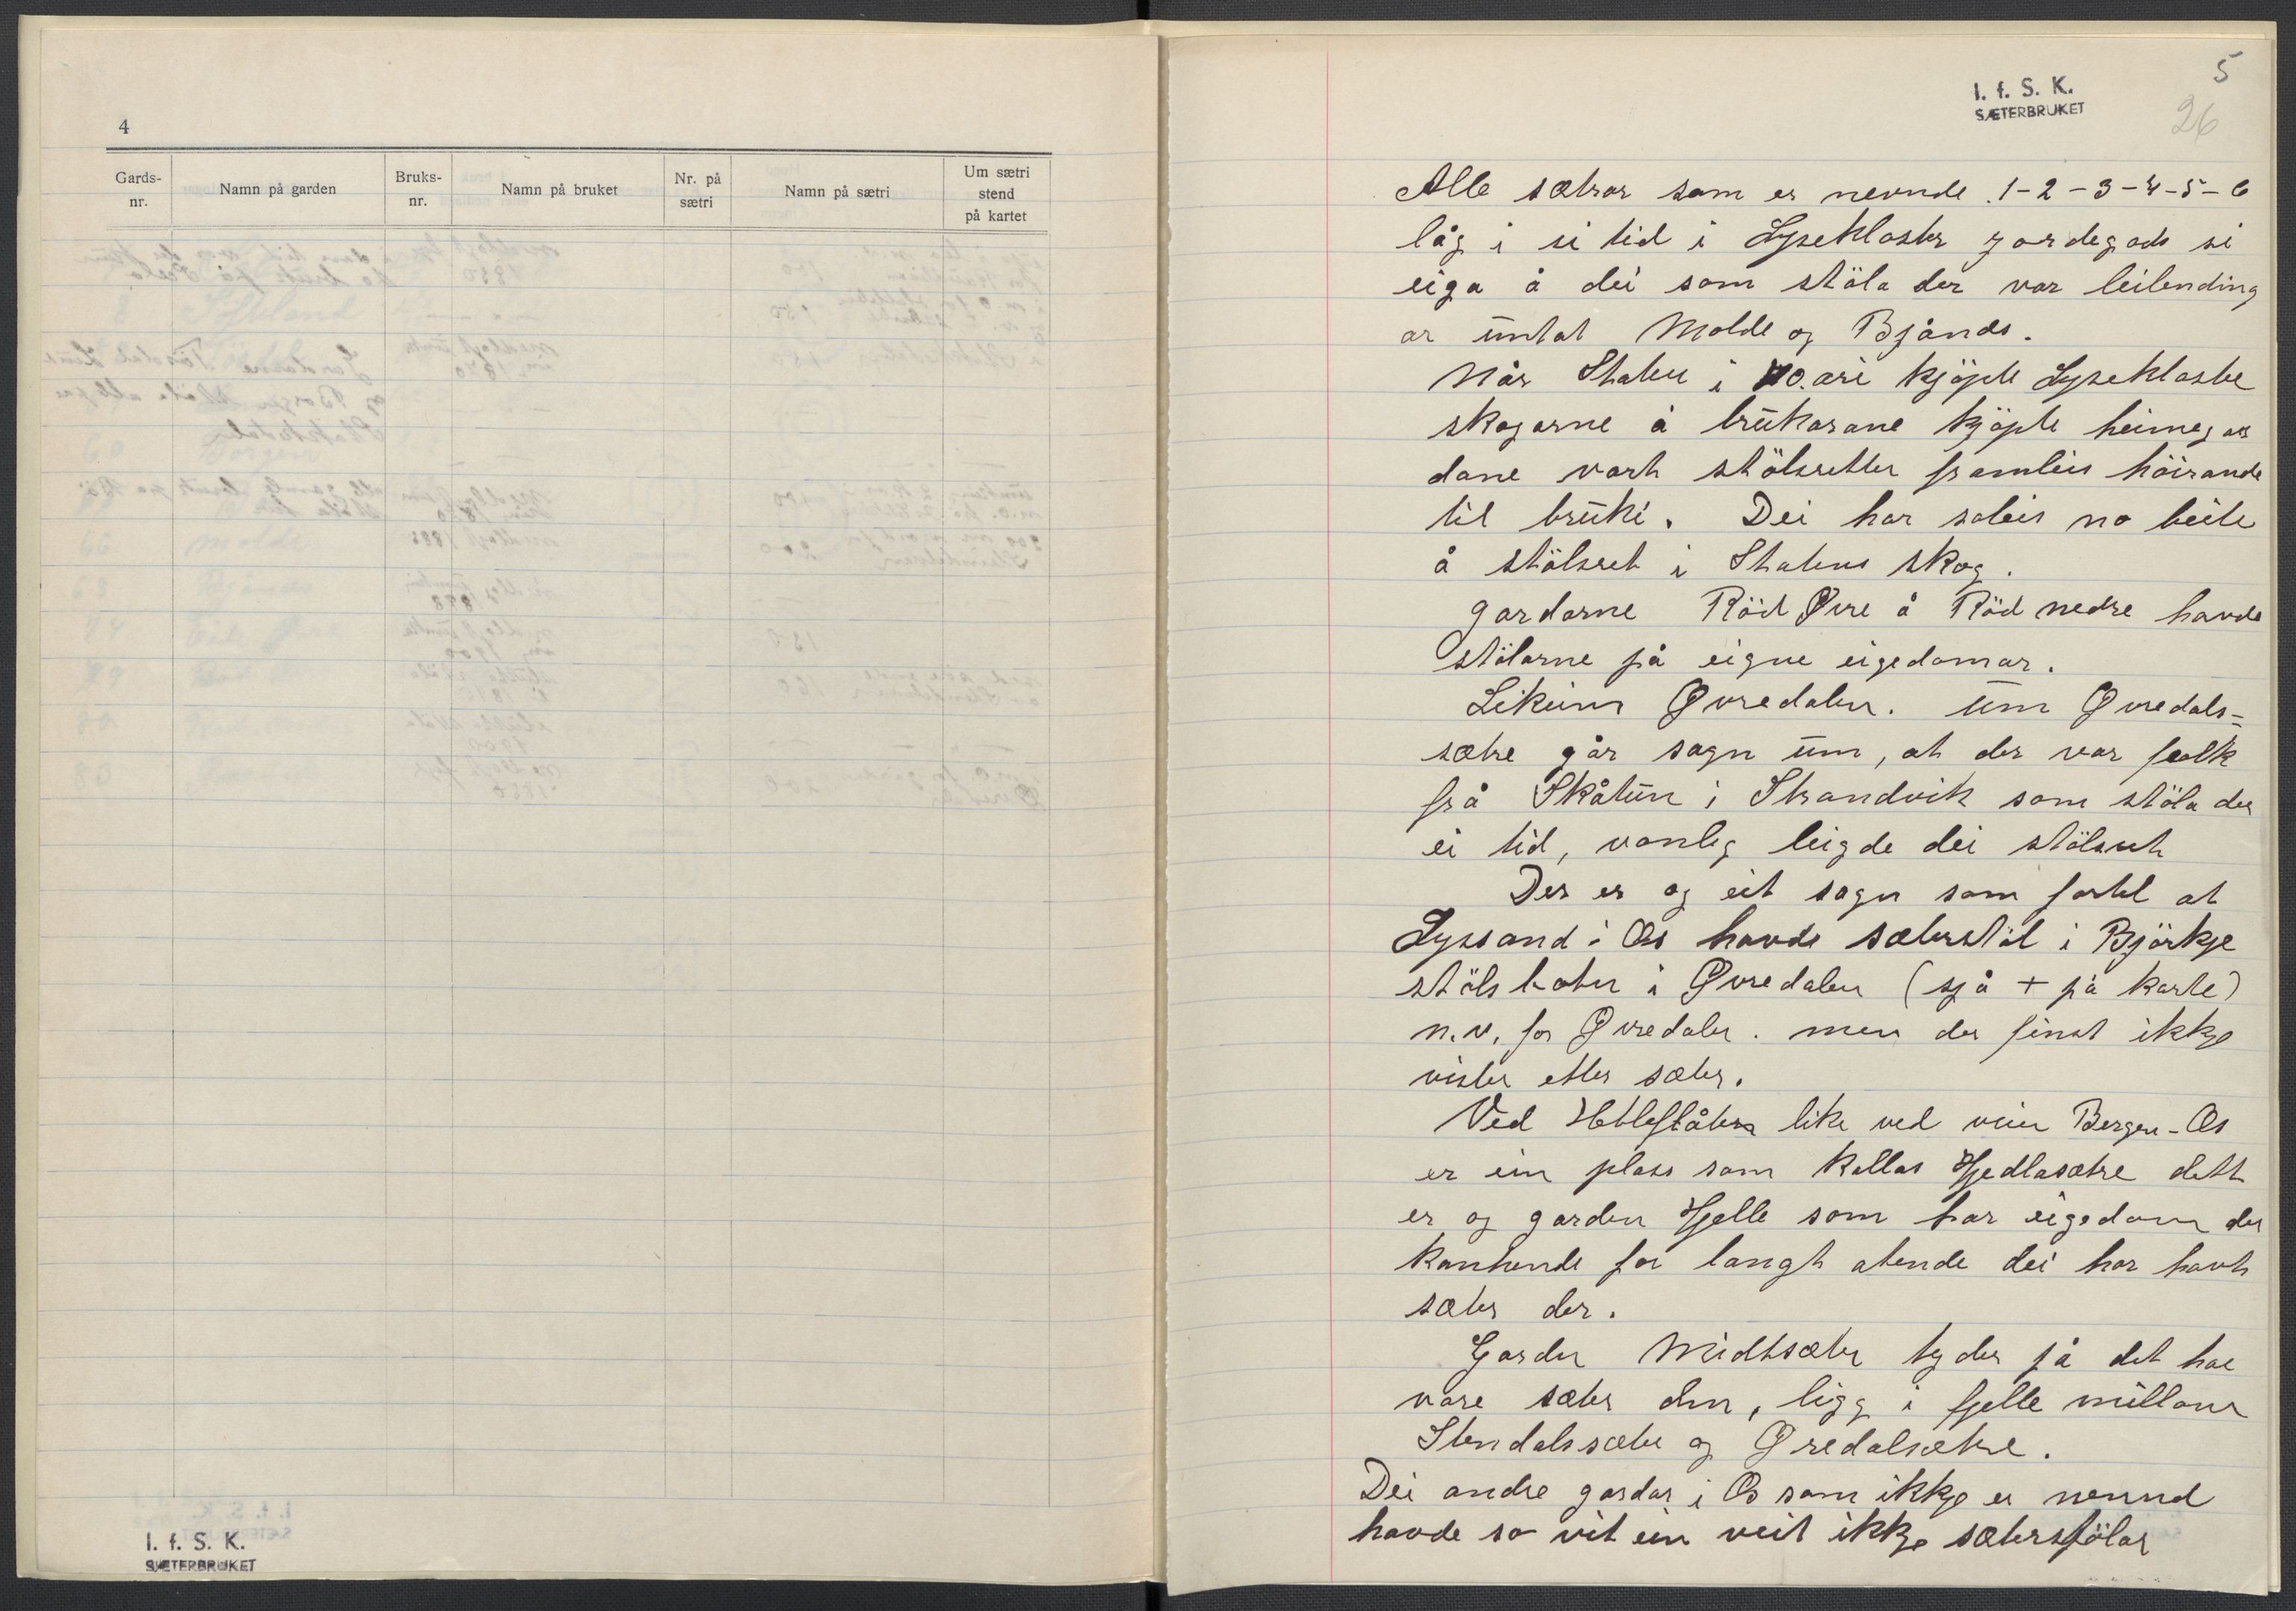 4
Gards-
nr.
Namn på garden
Bruks-
nr.
Namn på bruket
Nr. på
sætri
Namn på sætri
Um sætri
stend
på kartet
I. f. S. K.
SÆTERBRUKET
5
I. f. S. K.
SÆTERBRUKET
26
Alle sætrar som er nevnde. 1-2-3-4-5-6
låg i si tid i Lysekloster jordegods si
eiga å dei som stöla der var leilending
ar üntat Molde og Bjånds.
Når Staten i 70.åri kjöpte Lysekloste
skogarne å brükarane kjöpte heimegar
dane vart stölsretter framleis höirande
til brüki. Dei har soleis no beite
å stölsret i Statens skog.
gardarne Röd Øvre å Röd nedre havde
stölarne på eigne eigedomar.
Likeim Øvredalen. Üm Øvredals=
sætre går sagn üm, at der var folk
frå Skåtün i Strandvik som stöla der
ei tid, vanleg leigde dei stölsret
Der er og eit sagn som fortel at
Lyssand i Os havde sæterstöl i Björkje
stölsboten i Øvredalen (sjå + på karte)
n.v. for Øvredalen. men der finst ikkje
rister etter sæter.
Ved Hetleflåten like ved veien Bergen-Os
er ein plass som kallas Hjedlasætre dett
er og garden Hjelle som har eigedom der
kanhende for langt atende dei har havt
sæter der.
Garden Midtsæter tyder på det har
vore sæter den, ligg i fjelle millom
Stendalssæter og Øredalsætre.
Dei andre gardar i Os som ikkje er nevnd
havde so vit ein veit ikkje sæterstölar